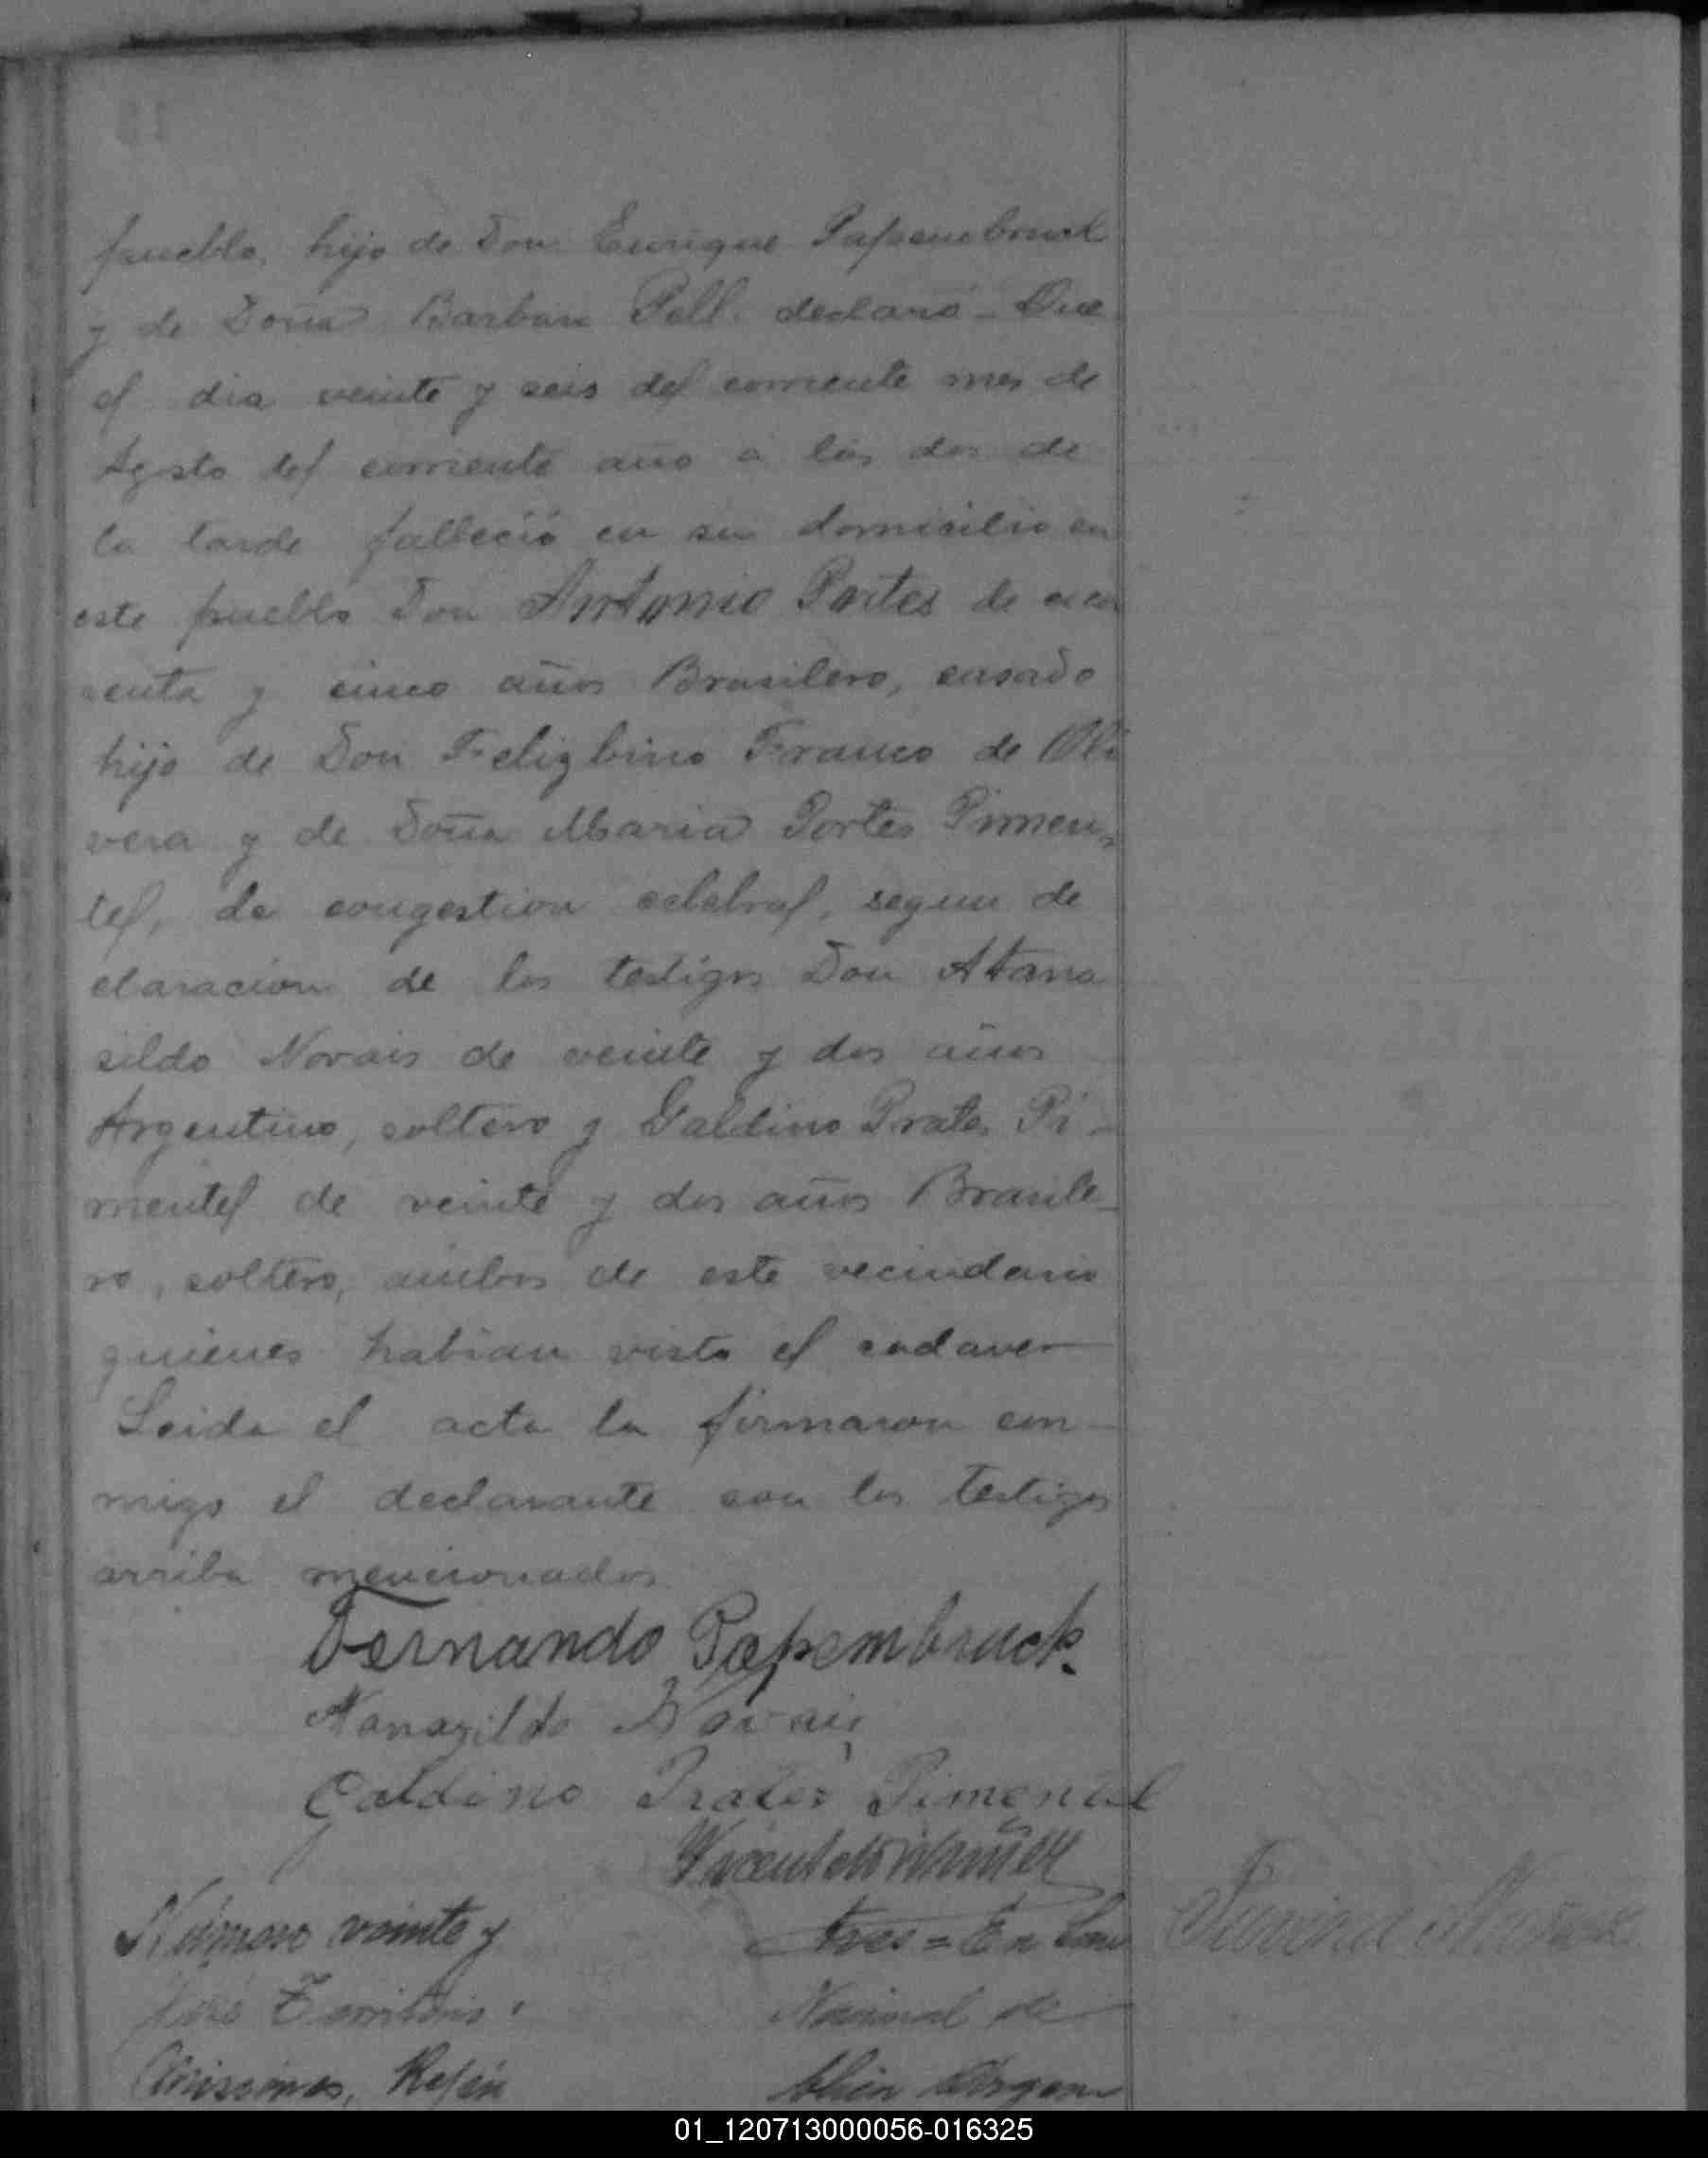 pueblo, hijo de Don Enrique Papembruck
y de Doña Barbara Poll. declaró - Que
el dia veinte y seis del corriente mes de
Agosto del corriente año a las dos de
la tarde falleció en su domicilio en
este pueblo Don Antonio Portes de cua
renta y cinco años Brasilero, casado
hijo de Don Feligbino Franco de Oli
vera y de Doña Maria Portes Pimen-
tel, de congestion celebral, segun de
claracion de los testigos Don Atana
sildo Novais de veinte y dos años
Argentino, soltero y Galdino Prates Pi-
mentel de veinte y dos años Brasile-
ro, soltero, ambos de este vecindario
quienes habian visto el cadaver
Leida el acta la firmaron con-
migo el declarante con los testigos
arriba mencionados
Fernando Papembruck.
Novais
Galdino Prates Pimental
Número veinte y tres = En San
José Territorio Nacional de
Misiones, Repú blica Argen
01_120713000056-016325